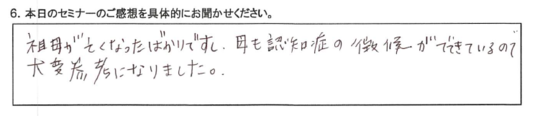 6. 本日のセミナーのご感想を具体的にお聞かせください。
祖母が亡くなったばかりですし、母も認知症の徴候がでてきているので
大変参考になりました。